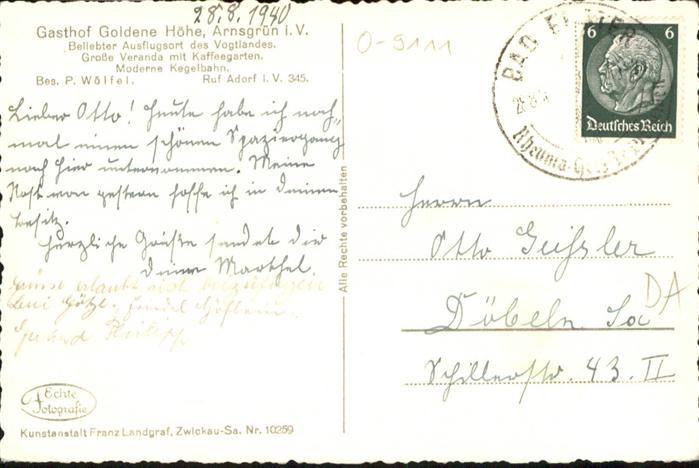 28.8.1940
Gasthof Goldene Höhe, Arnsgrün i.V.
Beliebter Ausflugsort des Vogtlandes.
Große Veranda mit Kaffeegarten.
Moderne Kegelbahn.
Bes. P. Wölfel. Ruf Adorf i. V. 345.
Lieber Otto! Heute habe ich noch-
mal einen schönen Spaziergang
nach hier unternommen. Meine
Post von gestern hoffe ich in deinem
Besitz.
Herzliche Grüße sendet dir
deine Marthel.
Grüße erlaubt sich beizufügen
Leni Götze,
Gerhard Philipp
Echte
Fotografie
Kunstanstalt Franz Landgraf, Zwickau-Sa. Nr. 10259
Alle Rechte vorbehalten
0-9111
BAD ELSTER
6 6
Deutsches Reich
Herrn
Otto Geißler
Döbeln Sa
DA
Schillerstr. 43. II